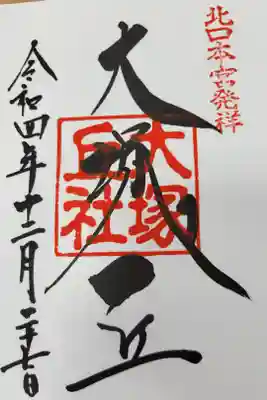 北口本宮発祥
大塚丘
大塚丘社
令和四年十二月二十七日